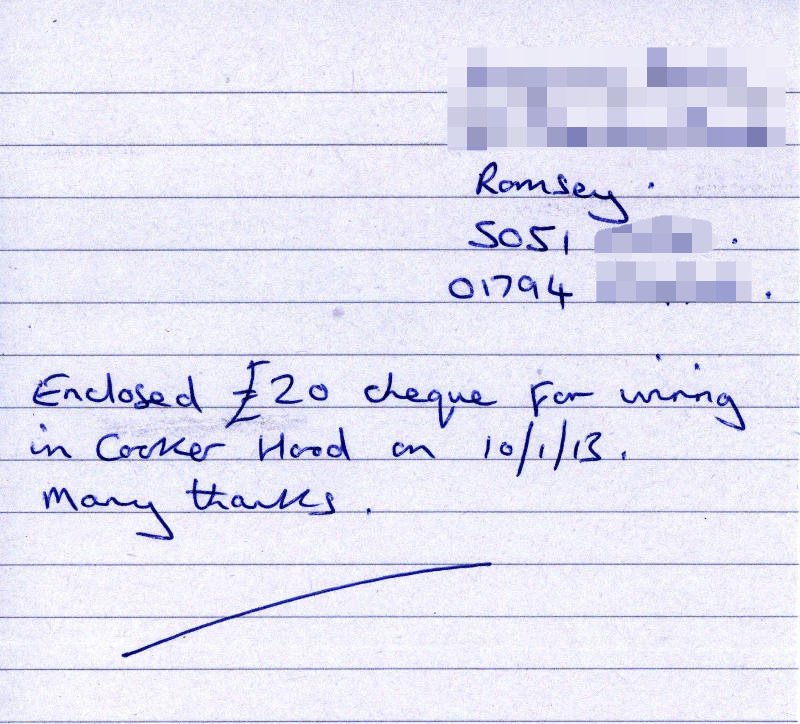 Romsey.
SO51 .
01794 .
Enclosed £20 cheque for wiring
in Cooker Hood on 10/1/13.
Many thanks.